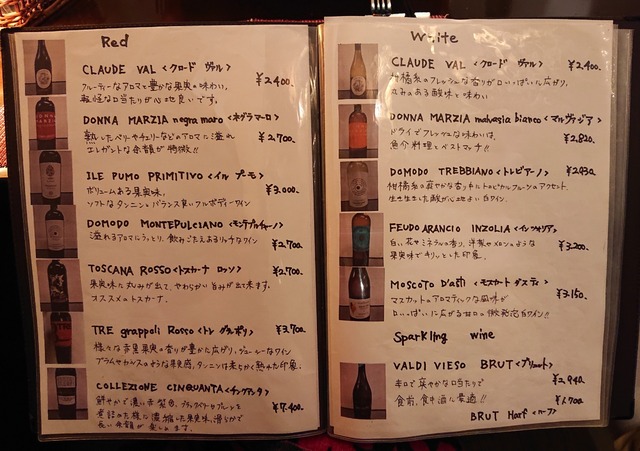 Red
CLAUDE VAL <クロード ヴァル>
¥2,400.
フルーティーなアロマと豊かな果実の味わい。
軽快な口当たりが心地良いです。
DONNA MARZIA negra maro <ネグラマーロ>
¥2,700.
熟したベリーやチェリーなどのアロマに溢れ
エレガントな余韻が特徴!!
ILE PUMO PRIMITIVO <イル プーモ>
¥3,000.
ボリュームある果実味。
ソフトなタンニンとバランス良いフルボディーワイン
DOMODO MONTEPULCIANO <モンテプルチャーノ>
溢れるアロマにうっとり、飲みごたえあるリッチなワイン
¥2,700
TOSCANA ROSSO <トスカーナ ロッソ>
¥2,700.
果実味に丸みが出て、やわらかい旨みが出て来ます。
オススメのトスカーナ.
TRE grappoli Rosso <トレ グラッポリ>
¥3,700
様々な赤黒果実の香りが豊かに広がり、ジューシーなワイン
プラムやカシスのような果実感、タンニンは柔らかく熟した印象.
COLLEZIONE CINQUANTA <チンクアンタ>
¥7,400.
鮮やかで濃い赤紫色、ブラックベリーやプルーンを
煮詰めた様に濃縮した果実味、滑らかで
長い余韻が楽しめます.
White
CLAUDE VAL <クロード ヴァル>
¥2,400.
柑橘系のフレッシュな香りが口いっぱいに広がり、
丸みのある酸味と味わい
DONNA MARZIA malvasia bianco <マルヴァジア>
¥2,820.
ドライでフレッシュな味わいは、
魚介料理とベストマッチ!!
DOMODO TREBBIANO <トレビアーノ>
¥2,930.
柑橘系の爽やかな香り中にトロピカルフルーツのアクセント.
生き生きした酸が心地よい白ワイン.
FEUDO ARANCIO INZOLIA <インツォリア>
¥3,200.
白い花やミネラルの香り、洋梨やメロンのような
果実味でキリッとした印象.
MOSCOTO D'asti <モスカート ダスティ>
¥3,150.
マスカットのアロマティックな風味が
口いっぱいに広がる甘口の微発泡白ワイン!!
Sparkling wine
VALDI VIESO BRUT <ブリュット>
¥2,940.
辛口で爽やかな口当たりで
食前、食中酒に最適!!
¥1,700
BRUT Harf <ハーフ>